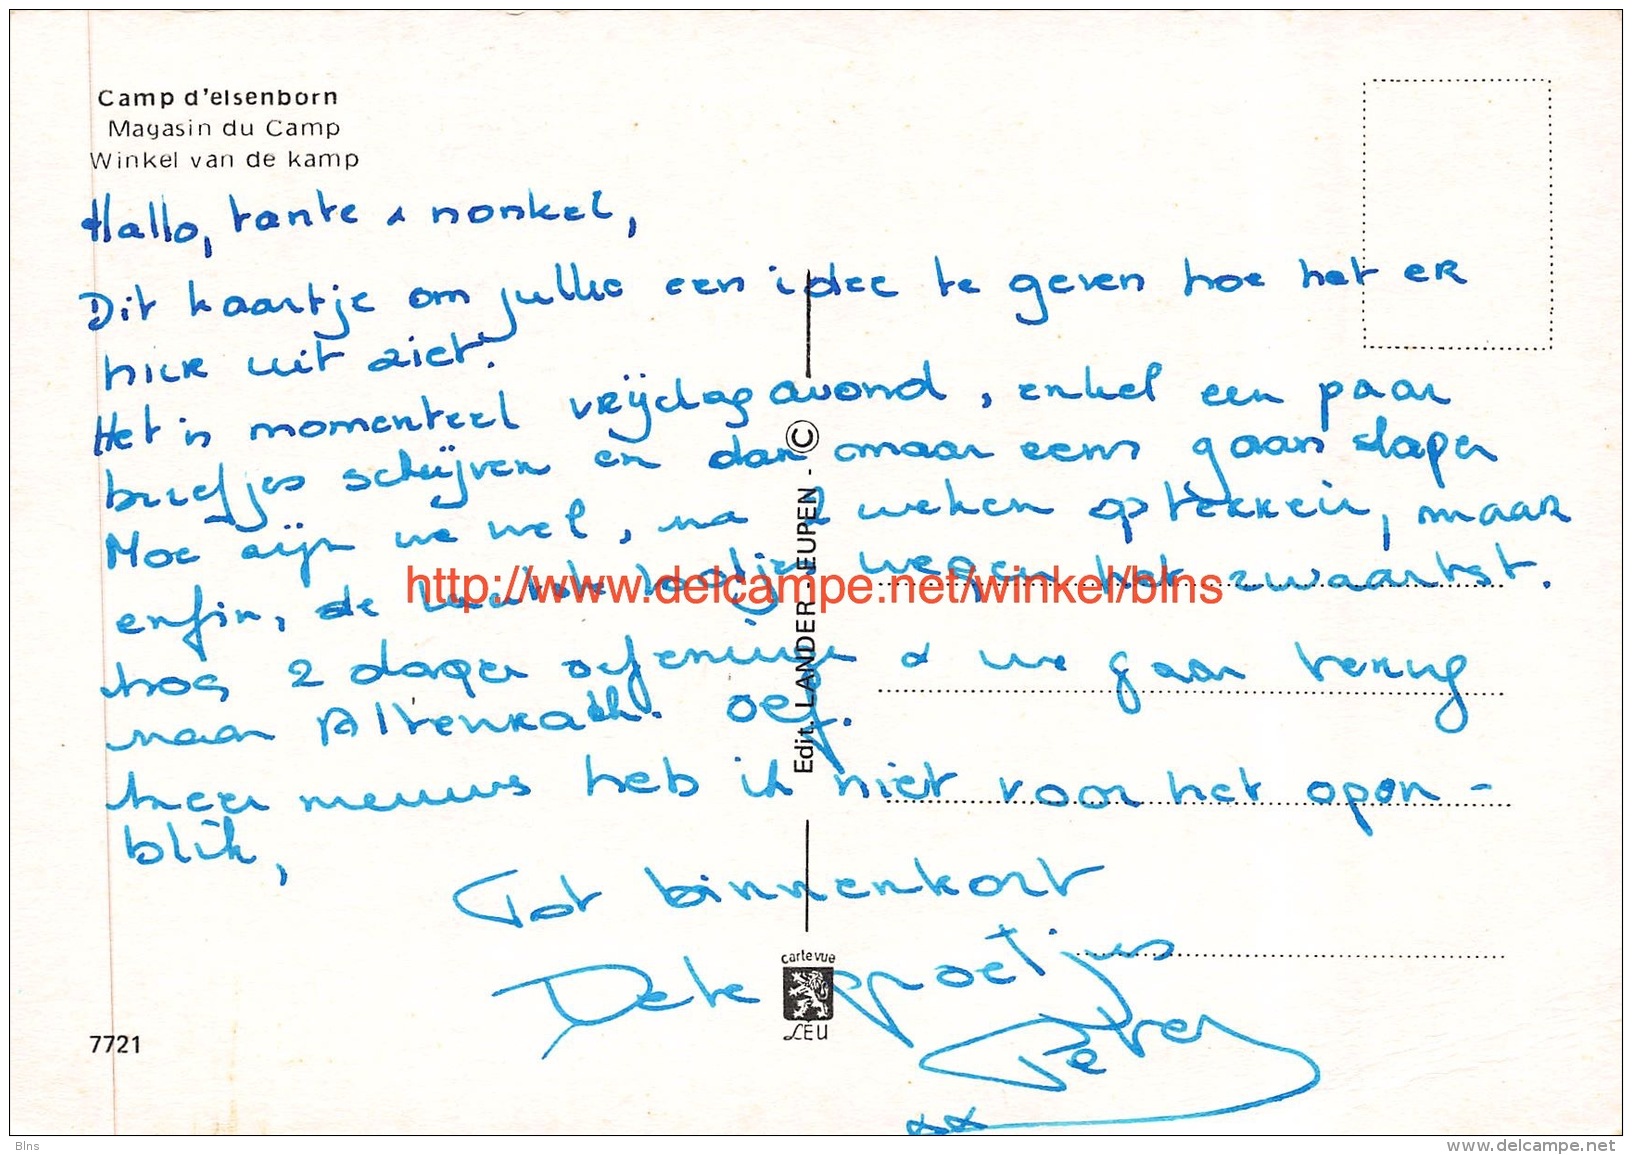 Camp d'elsenborn
Magasin du Camp
Winkel van de kamp
Hallo, tante & nonkel,
Dit kaartje om jullie een idee te geven hoe het er
hier uit ziet.
Het is momenteel vrijdagavond, enkel een paar
briefjes schrijven en dan maar eens gaan slapen
Moe zijn we wel, na 2 weken optrekken, maar
enfin, de laatste loodjes wegen het zwaartst.
Nog 2 dagen oefening & we gaan terug
naar Altenrath. Oef.
Meer nieuws heb ik niet voor het ogen-
blik,
Tot binnenkort
Dete groetjes
Peter
xx
Edit. LANDER - EUPEN - ©
carte vue
LEU
7721
http://www.delcampe.net/winkel/blns
Blns
www.delcampe.net